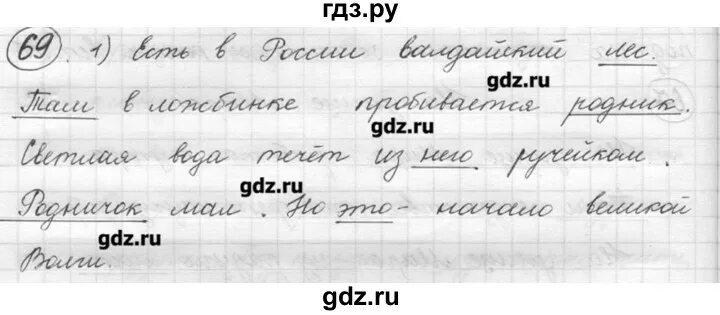 гдз.ру
69. 1) Есть в России валдайский лес.
gdz.ru
Там в ложбинке пробивается родник.
gdz.ru
Светлая вода течёт из него ручейком.
gdz.ru
Родничок мал. Но это - начало великой
gdz.ru
Волги.
gdz.ru